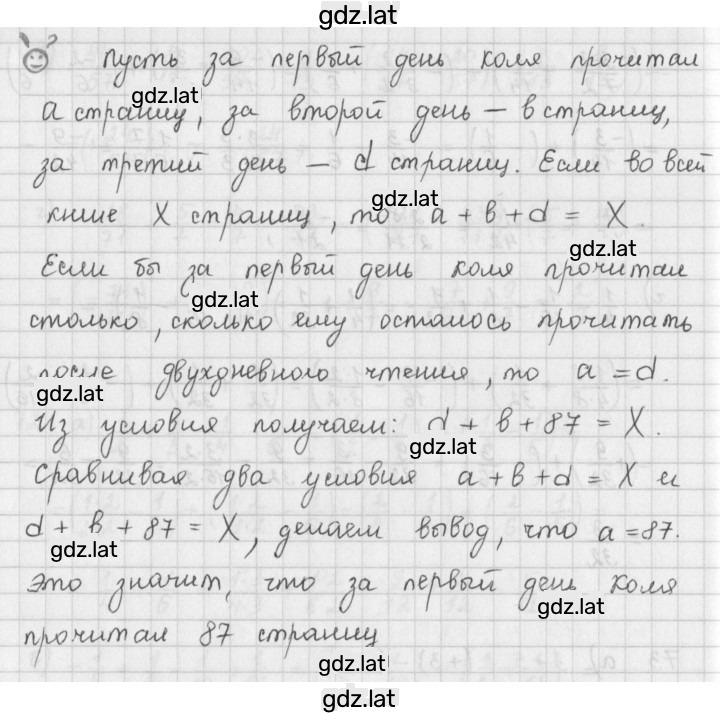 gdz.lat
Пусть за первый день Коля прочитал
gdz.lat
a страниц, за второй день – b страниц,
за третий день – d страниц. Если во всей
gdz.lat
книге X страниц, то a + b + d = X.
gdz.lat
Если бы за первый день Коля прочитал
gdz.lat
столько, сколько ему осталось прочитать
после двухдневного чтения, то a = d.
gdz.lat
Из условия получаем: d + b + 87 = X.
gdz.lat
Сравнивая два условия a + b + d = X и
d + b + 87 = X, делаем вывод, что a = 87.
gdz.lat
Это значит, что за первый день Коля
gdz.lat
прочитал 87 страниц
gdz.lat
gdz.lat